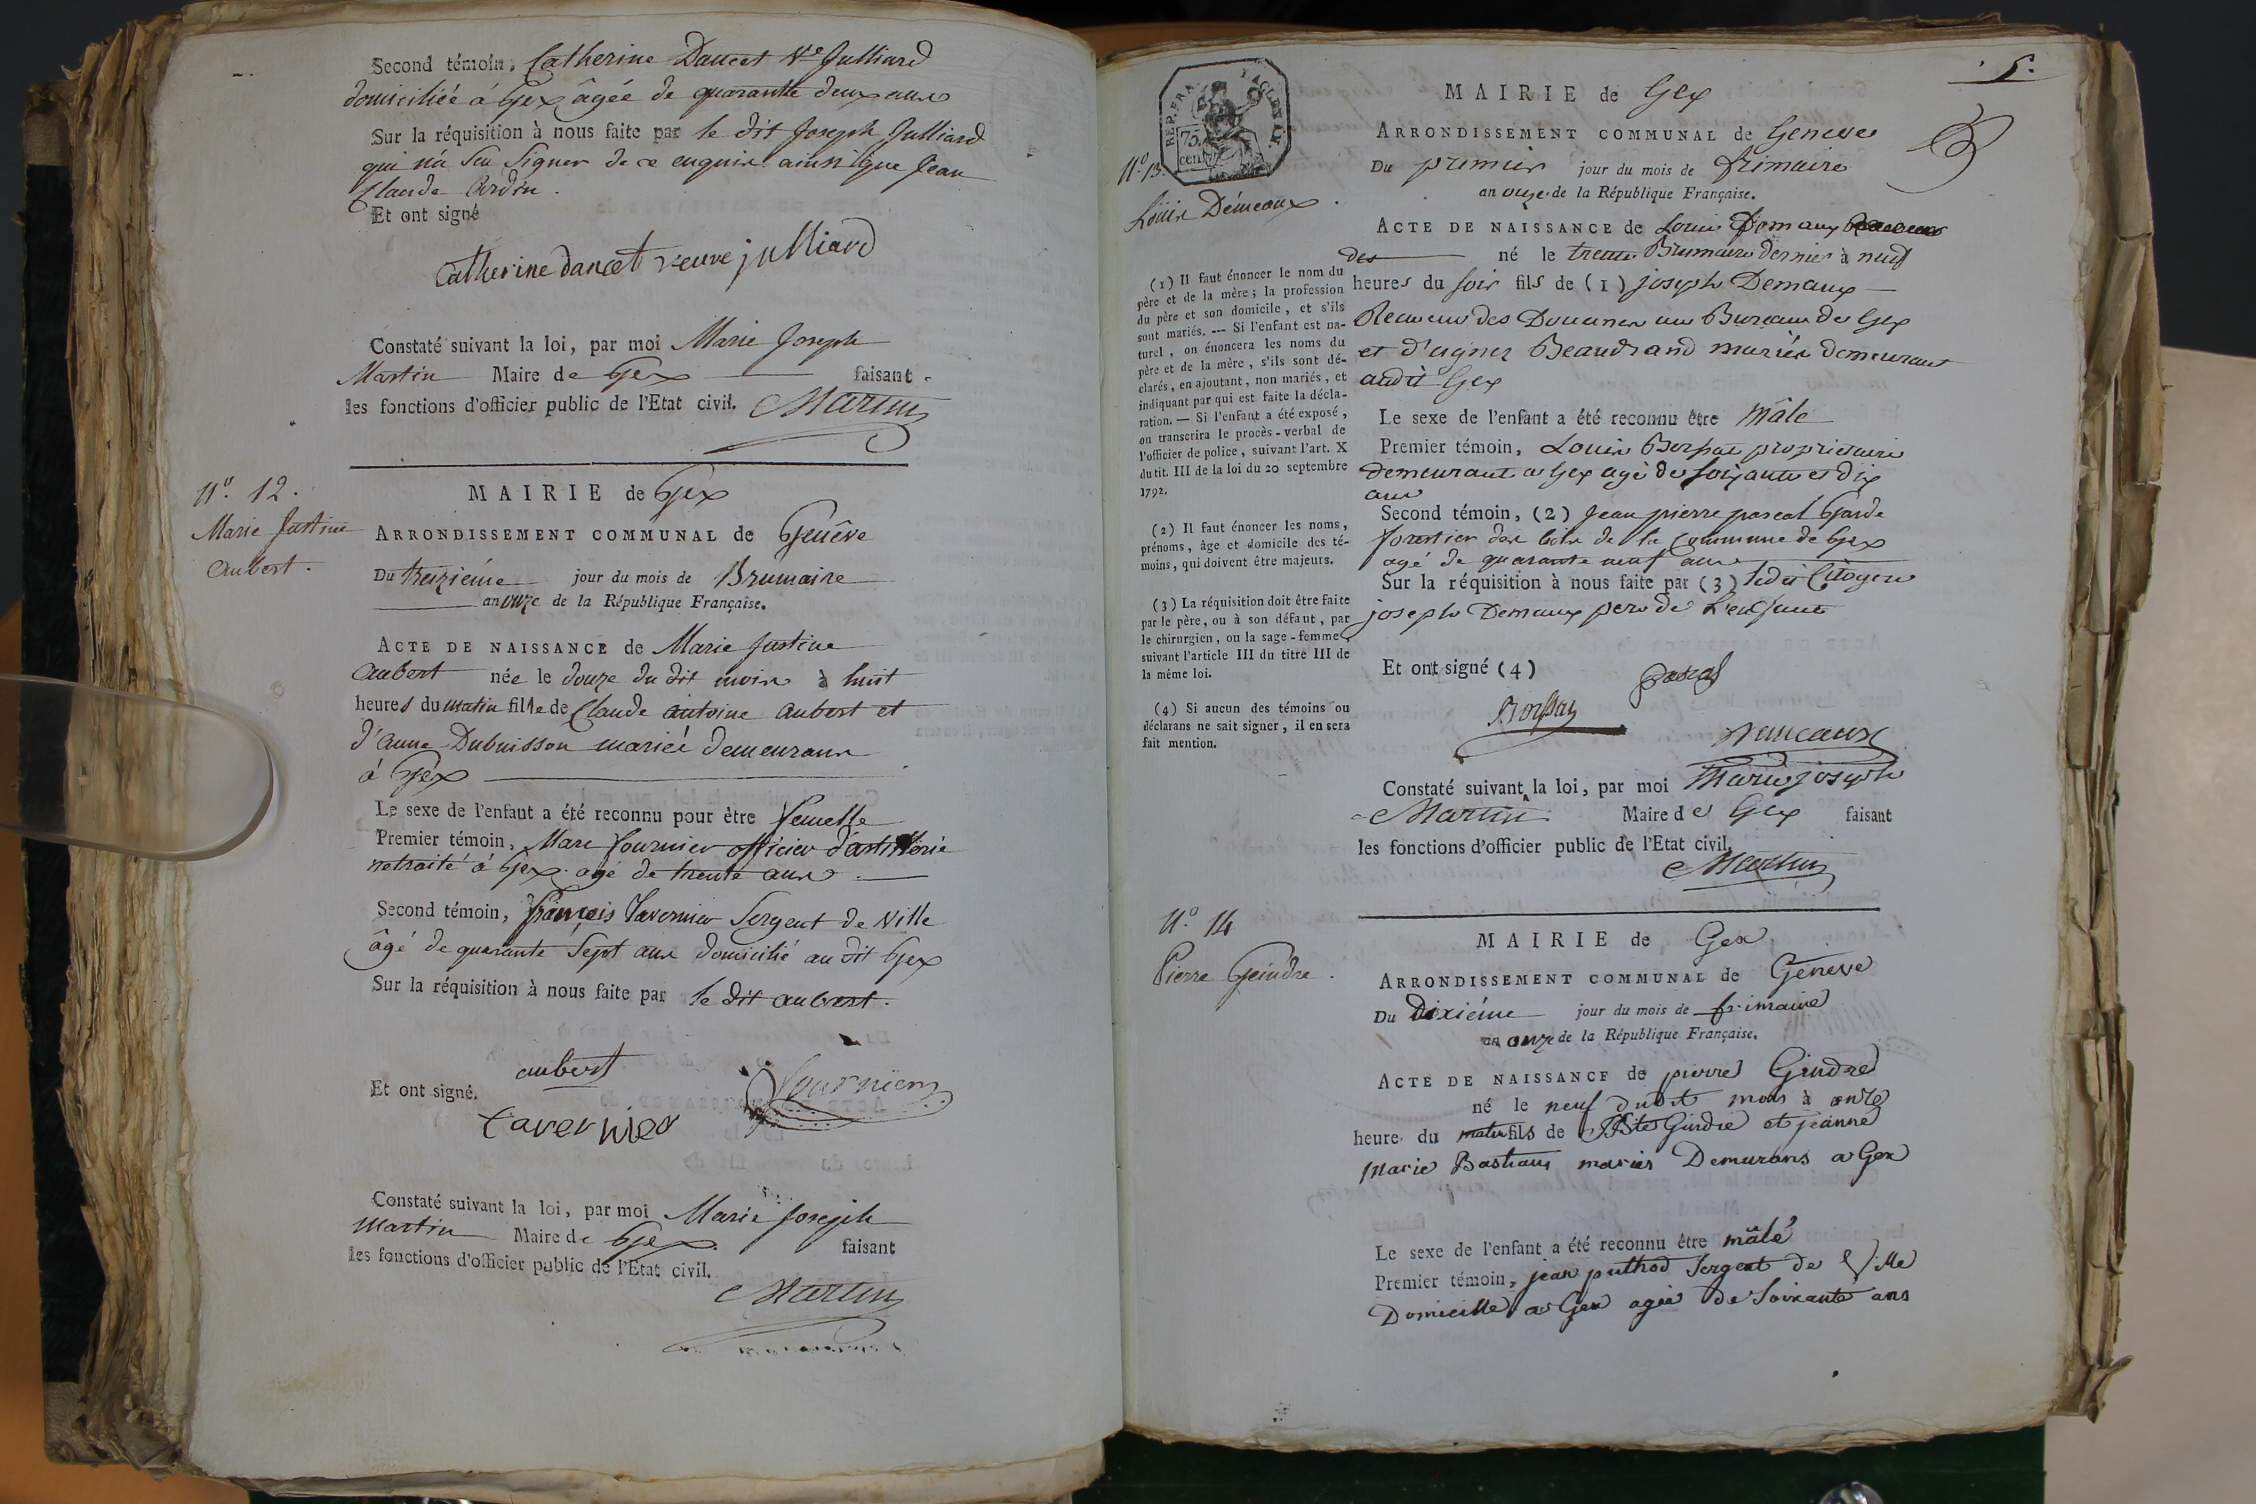 Second témoin, Catherine Dancet Ve Julliard
domiciliée á Gex âgée de quarante deux ans
Sur la réquisition à nous faite par le dit Joseph Julliard
qui n'a seu signer de ce enquis ainsi que Jean
Claude Ardin.
Et ont signé
Catherine dancet veuve julliard
Constaté suivant la loi, par moi Marie Joseph
Martin Maire de Gex faisant
les fonctions d'officier public de l'Etat civil. Martin
N.º 12.
Marie Justine
Aubert.
MAIRIE de Gex
ARRONDISSEMENT COMMUNAL de Genêve
Du treizième jour du mois de Brumaire
an onze de la République Française.
ACTE DE NAISSANCE de Marie Justine
Aubert née le douze du dit mois à huit
heures du matin fille de Claude antoine aubert et
d'Anne Dubuisson mariéś demeurans
á Gex
Le sexe de l'enfaut a été reconnu pour être femelle
Premier témoin, Marc fournier officier d'artillérie
retraité á Gex agé de trente ans
Second témoin, françois Tavernier Sergent de ville
âgé de quarante Sept ans domicilié au dit Gex
Sur la réquisition à nous faite par le dit aubert.
aubert
Et ont signé. Fournier
tavernier
Constaté suivant la loi, par moi Marie Joseph
Martin Maire de Gex faisant
les fonctions d'officier public de l'Etat civil.
Martin
5.
REP. FRA.
75
cent.
N.º 13.
Louis Démeaux.
MAIRIE de Gex
ARRONDISSEMENT COMMUNAL de Geneve
Du premier jour du mois de frimaire
an onze de la République Française.
ACTE DE NAISSANCE de Louis Demaux
des né le trente Brumaire dernier à neuf
heures du soir fils de (1) joseph Demaux
Receveur des Douanes au Bureau de Gex
et d'agnes Beaudrand mariés demeurant
audit Gex
Le sexe de l'enfant a été reconnu être mâle
Premier témoin, Louis Borssat proprietaire
demeurant a Gex agé de soixante et dix
ans
Second témoin, (2) Jean pierre pascal Garde
forestier des bois de la Commune de Gex
agé de quarante neuf ans
Sur la réquisition à nous faite par (3) ledit Citoyen
joseph Demaux pere de L'enfant
Et ont signé (4) pascal
Borssat
Demeaux
Constaté suivant la loi, par moi Marie joseph
Martin Maire de Gex faisant
les fonctions d'officier public de l'Etat civil.
Martin
(1) Il faut énoncer le nom du
père et de la mère; la profession
du père et son domicile, et s'ils
sont mariés. --- Si l'enfant est na-
turel, on énoncera les noms du
père et de la mère, s'ils sont dé-
clarés, en ajoutant, non mariés, et
indiquant par qui est faite la décla-
ration. — Si l'enfant a été exposé,
on transcrira le procès-verbal de
l'officier de police, suivant l'art. X
du tit. III de la loi du 20 septembre
1792.
(2) Il faut énoncer les noms,
prénoms, âge et domicile des té-
moins, qui doivent être majeurs.
(3) La réquisition doit être faite
par le père, ou à son défaut, par
le chirurgien, ou la sage-femme,
suivant l'article III du titre III de
la même loi.
(4) Si aucun des témoins ou
déclarans ne sait signer, il en sera
fait mention.
N.º 14
Pierre Geindre.
MAIRIE de Gex
ARRONDISSEMENT COMMUNAL de Géneve
Du Dixiéme jour du mois de frimaire
an onze de la République Française.
ACTE DE NAISSANCE de pierre Gindre
né le neuf dudit mois à onze
heure du matin fils de JBte Gindre et jeanne
Marie Bastians mariés Demurans a Gex
Le sexe de l'enfant a été reconnu être mâle
Premier témoin, jean puthod Sergent de Ville
Domicille a Gex agée de Soixante ans